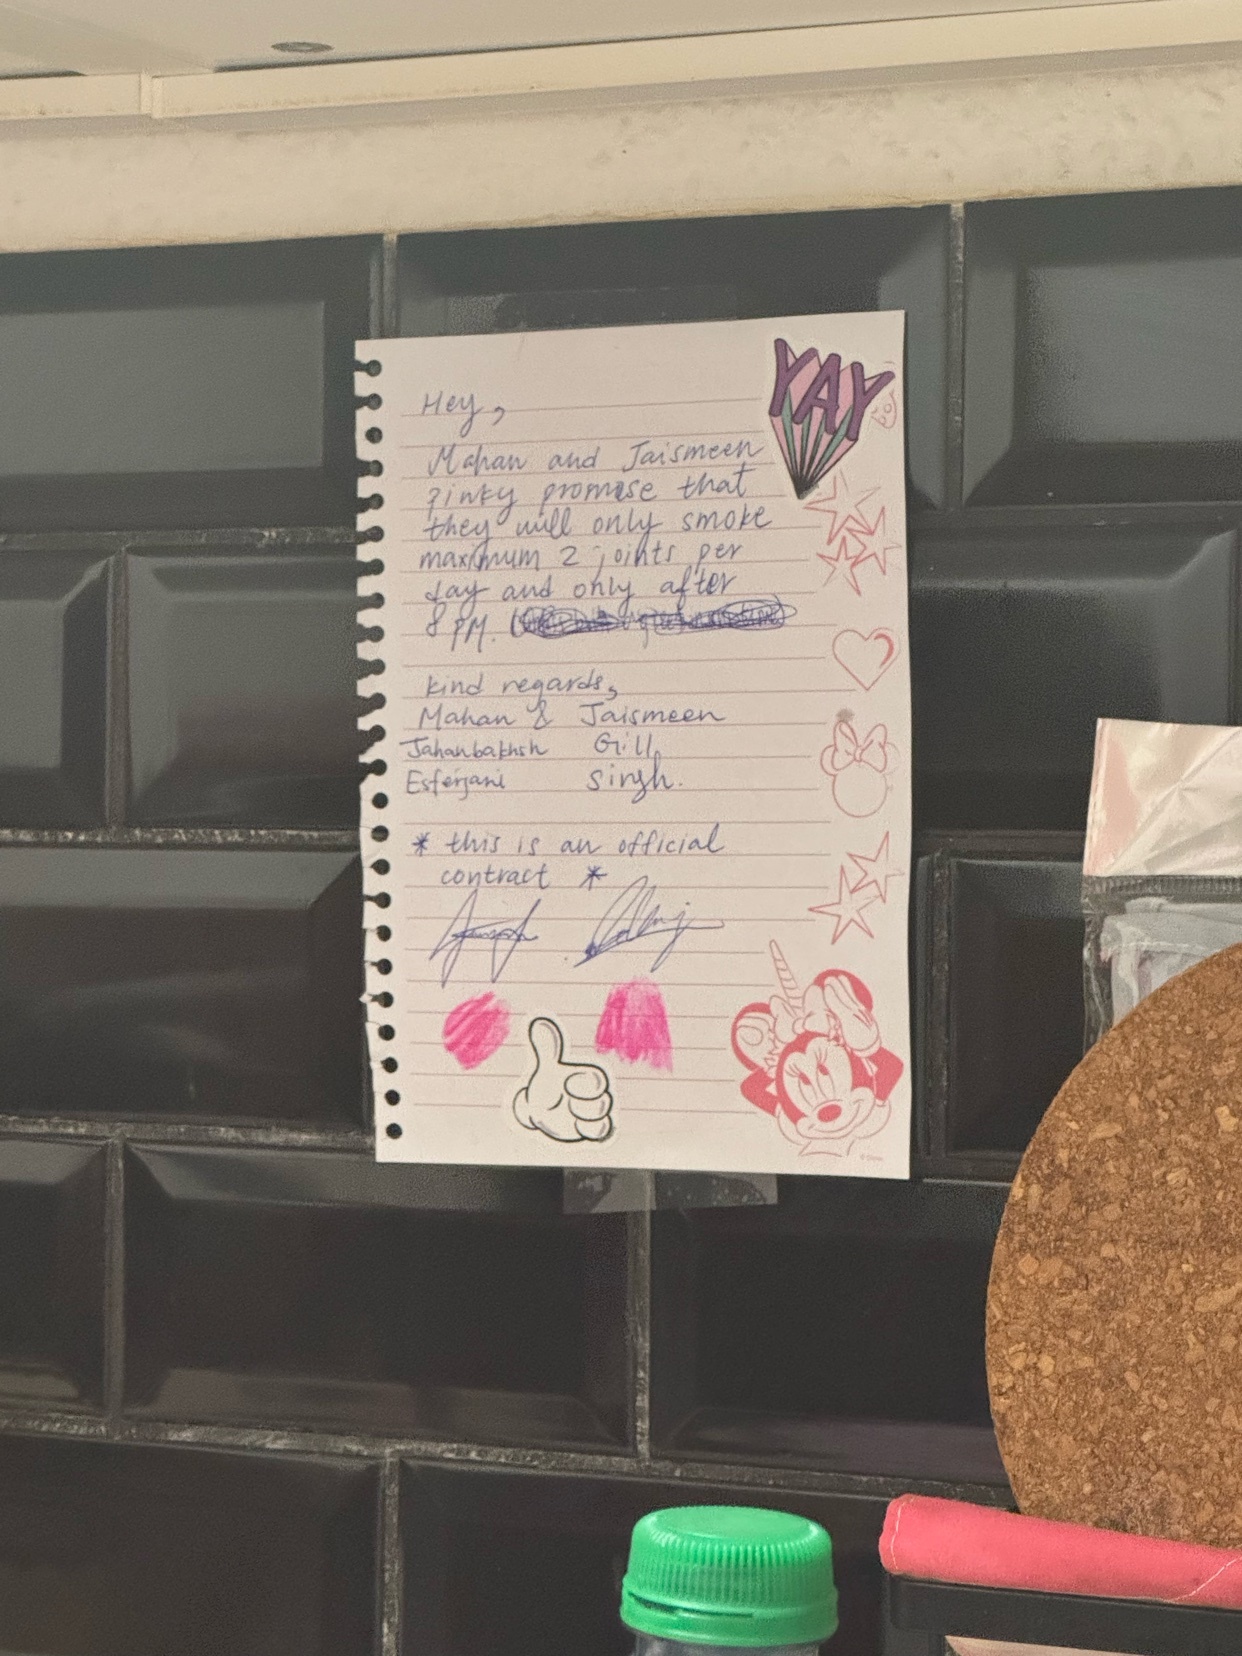 YAY
Hey,
Mahan and Jaismeen
pinky promise that
they will only smoke
maximum 2 joints per
day and only after
8 PM.
kind regards,
Mahan & Jaismeen
Jahanbakhsh Gill
Esferjani Singh.
* this is an official
contract *